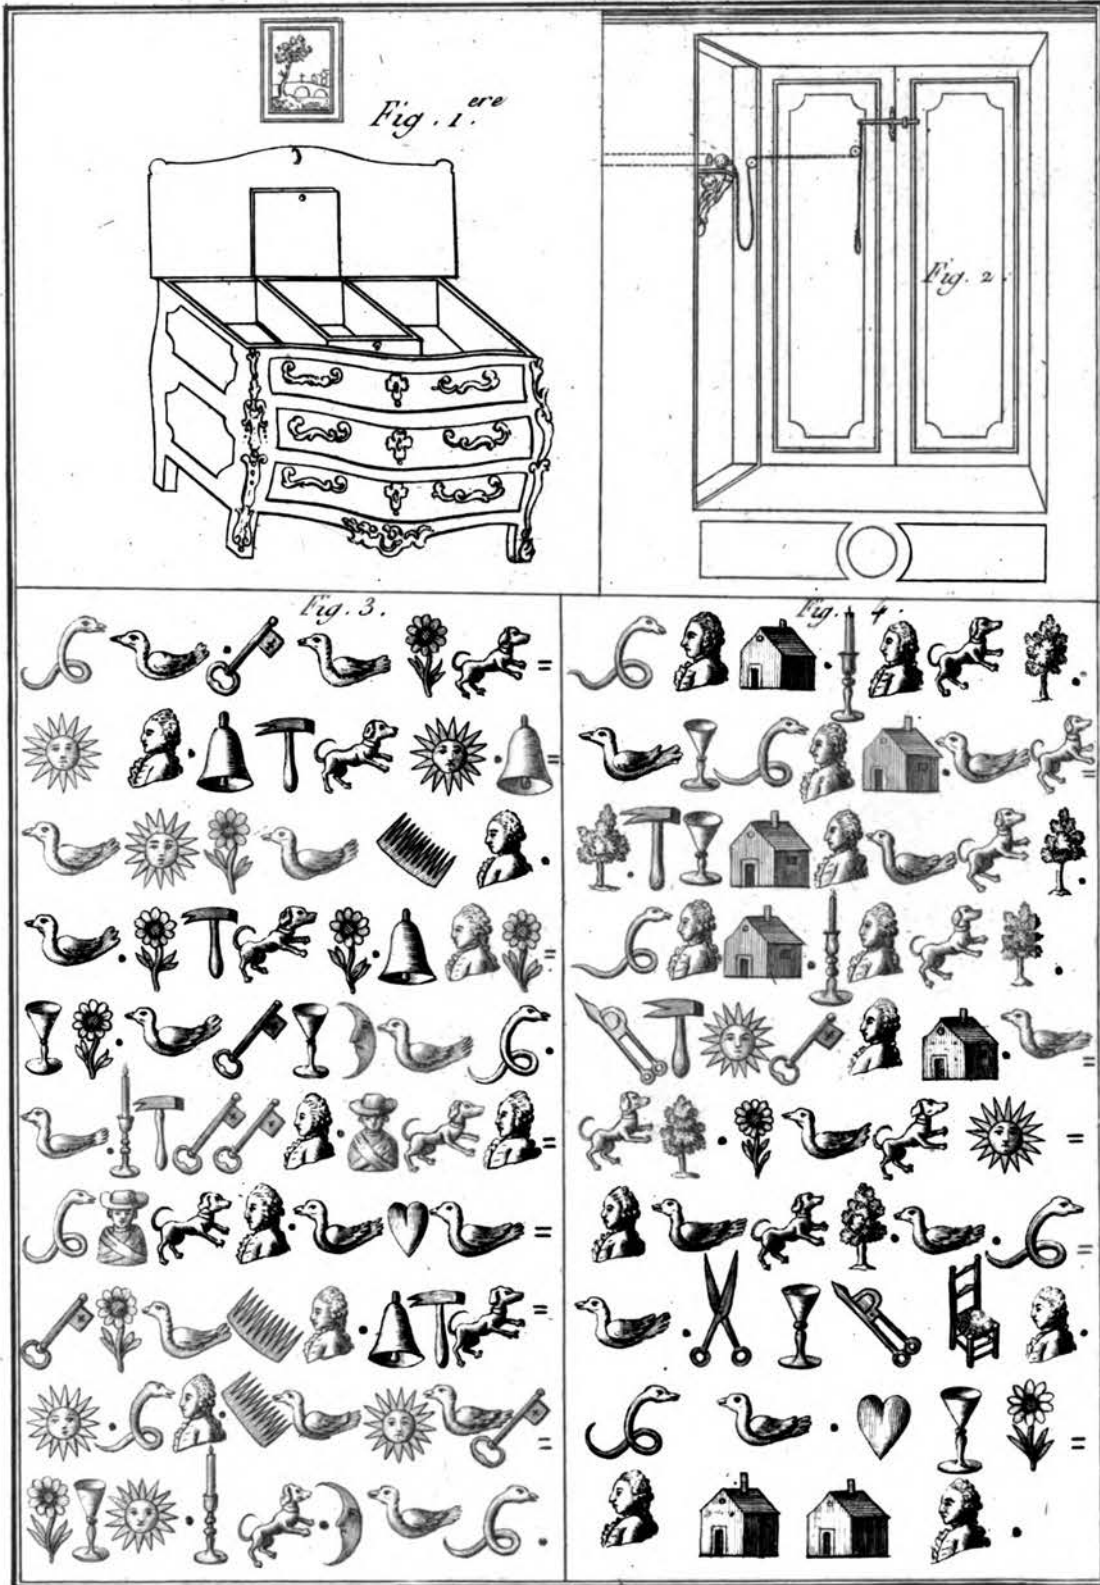 Fig. 1.ere
Fig. 2.
Fig. 3.
Fig. 4.